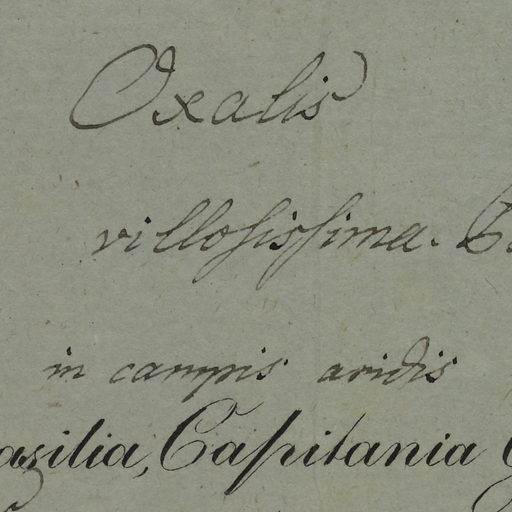 Oxalis
villosissima.
in campis aridis
asilia, Capitania